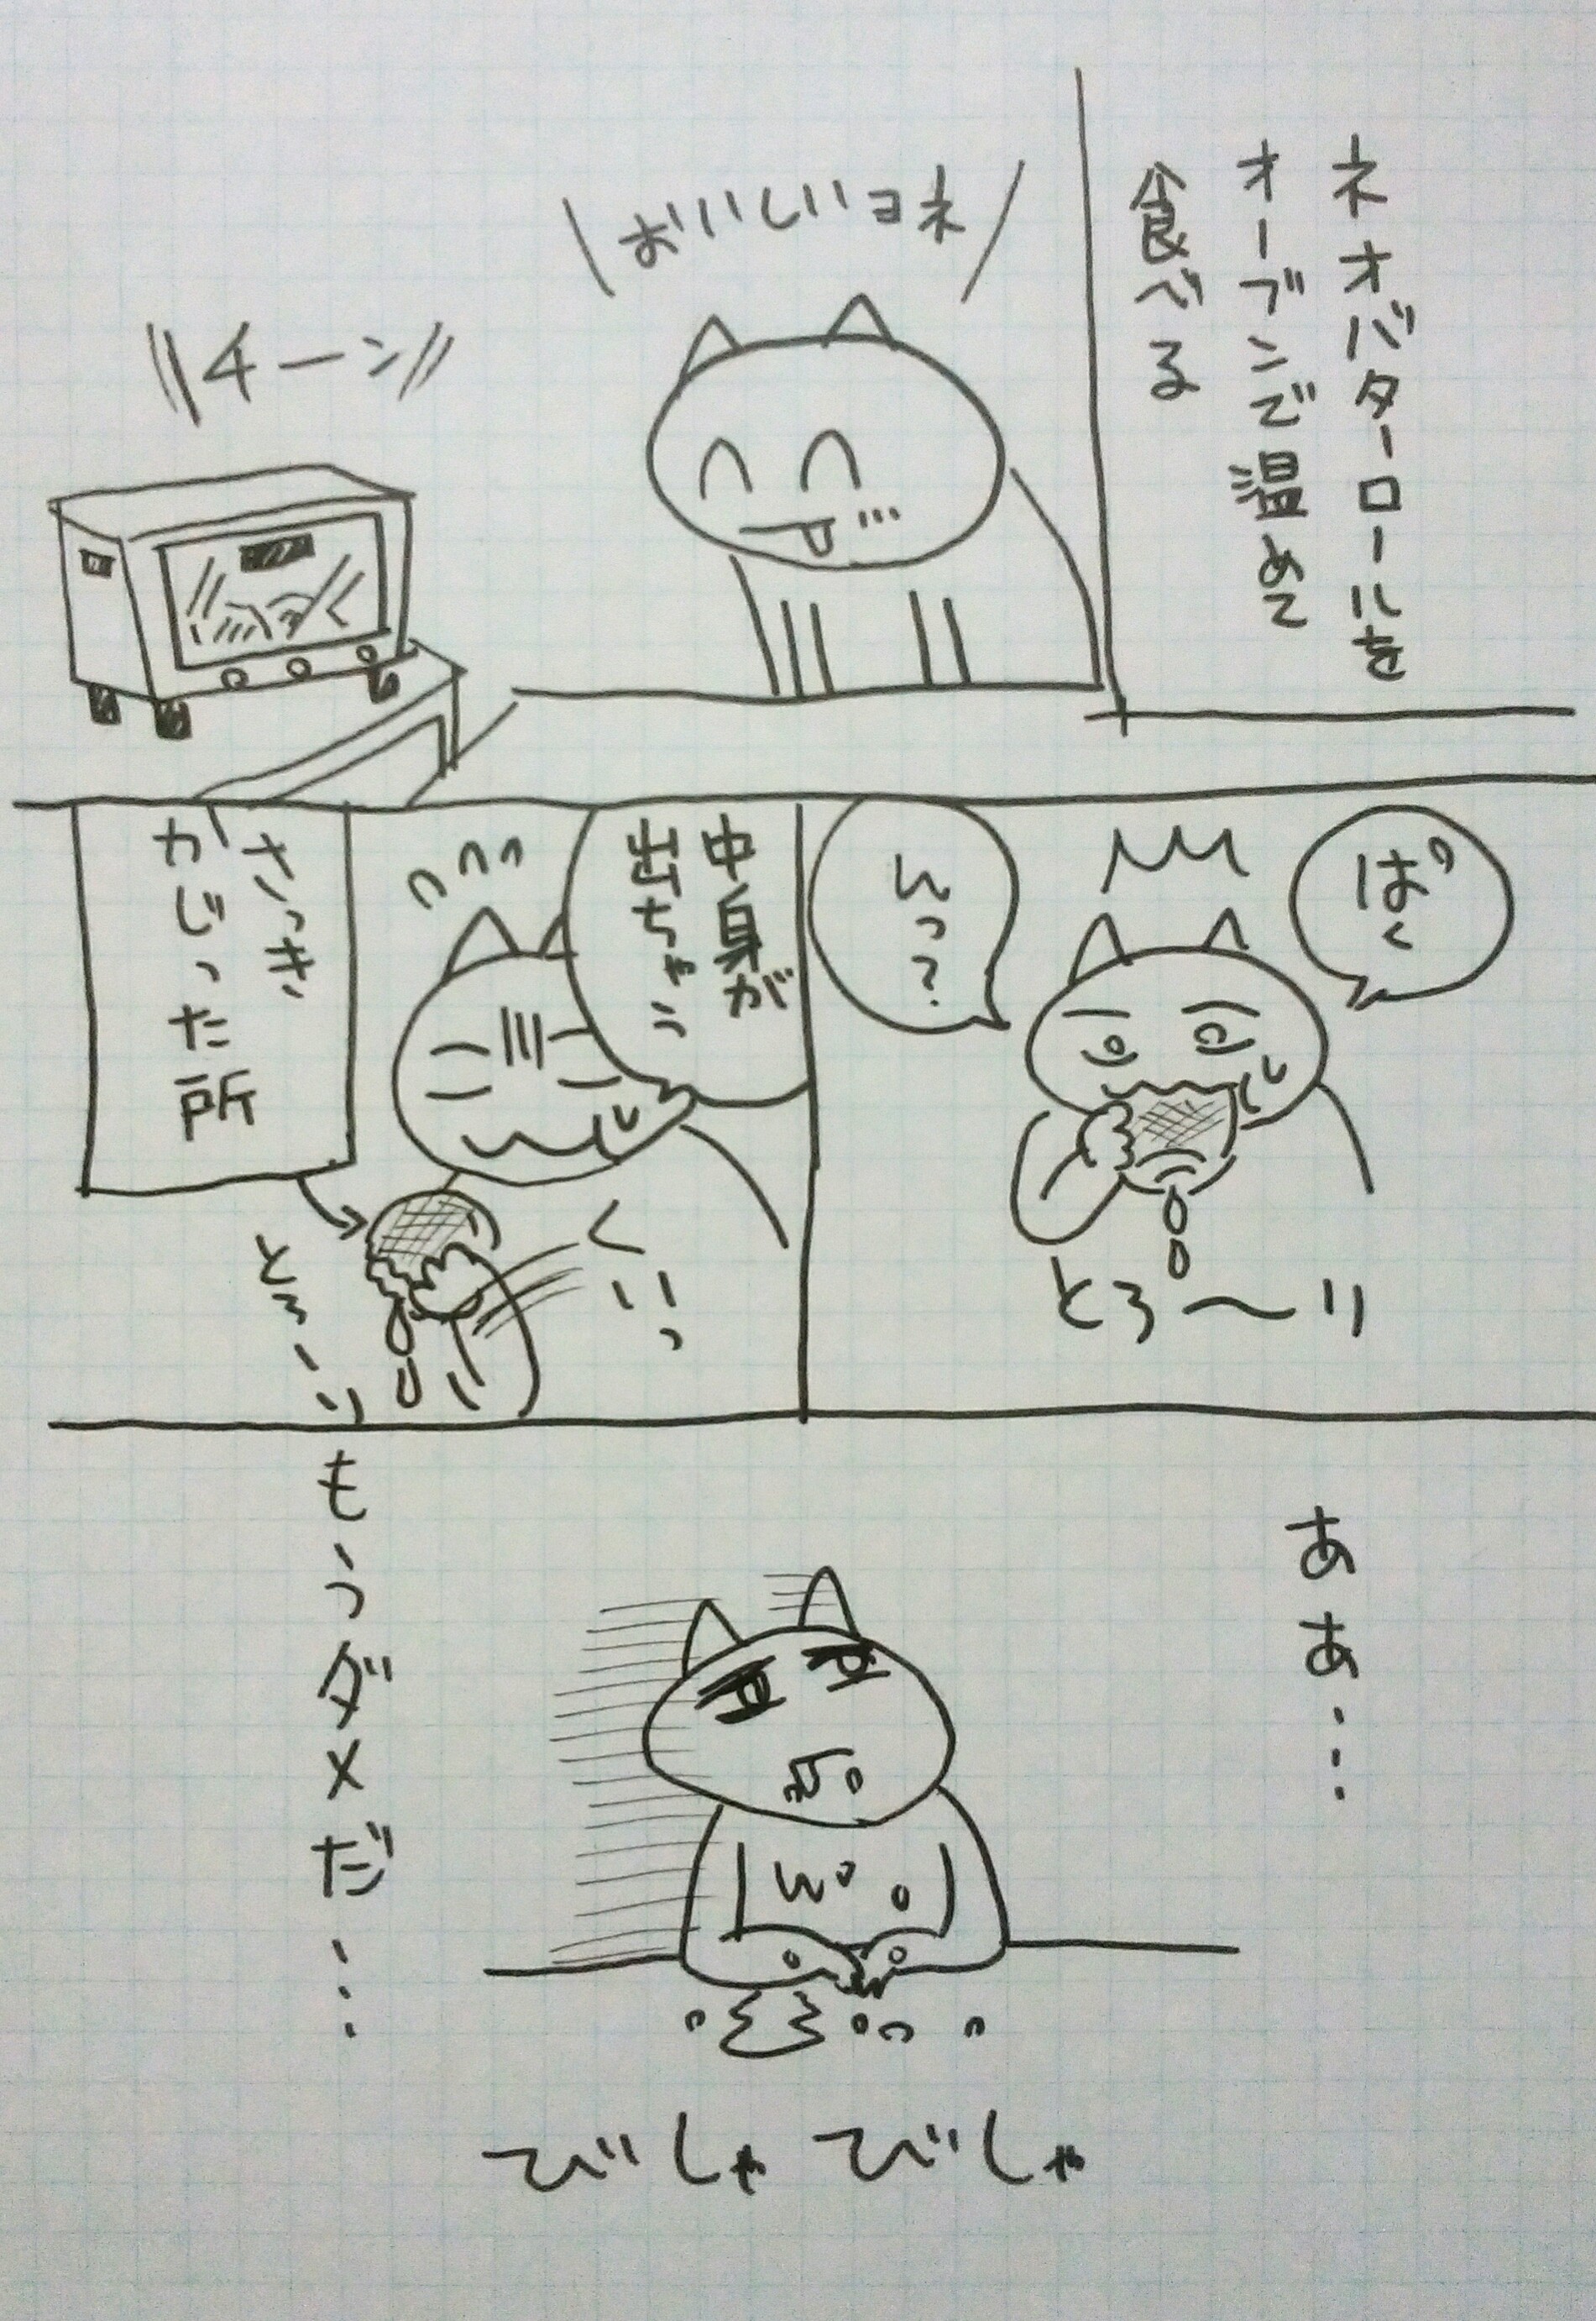 ネオバターロールを
オーブンで温めて
食べる
おいしいヨネ
チーン
ぱく
んっ?
とろ〜り
中身が
出ちゃう
くいっ
さっき
かじった所
とろーり
ああ…
もうダメだ…
びしゃびしゃ